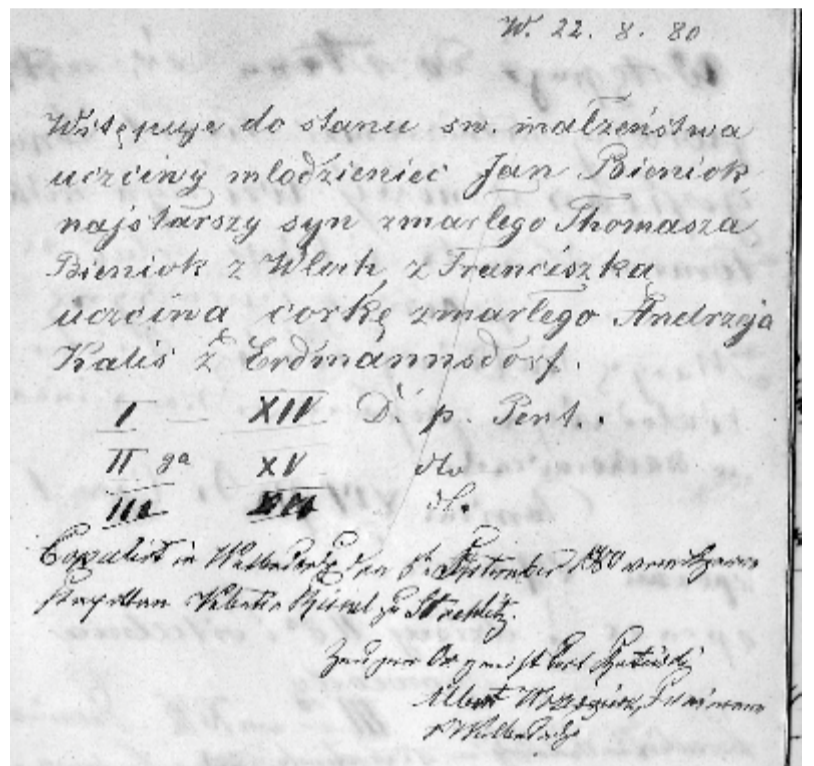 W. 22. 8. 80
Wstępuje do stanu sw. malzeństwa
uczciwy mlodzieniec Jan Bieniok
najstarszy syn zmarlego Thomasza
Bieniok z Wloch, z Franciszką
uczciwa corkę zmarlego Andrzeja
Kalis z Erdmannsdorf.
I XIV D. p. Pent.
II ga XV dto
III a XVI dt.
Copulirt in den 6. September 1880 vom
Kaplan Valentin zu Strehlitz.
Zeugen Organist Carl
Albert